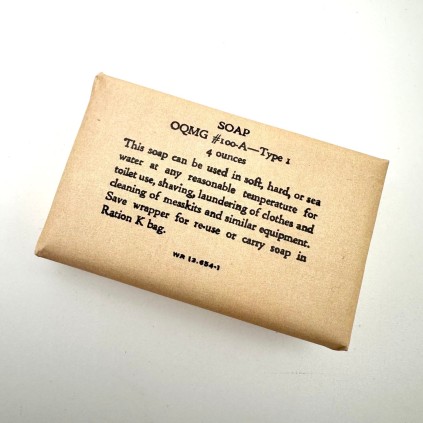 SOAP
OQMG #100-A—Type 1
4 ounces
This soap can be used in soft, hard, or sea
water at any reasonable temperature for
toilet use, shaving, laundering of clothes and
cleaning of messkits and similar equipment.
Save wrapper for re-use or carry soap in
Ration K bag.
WR 12,654-1